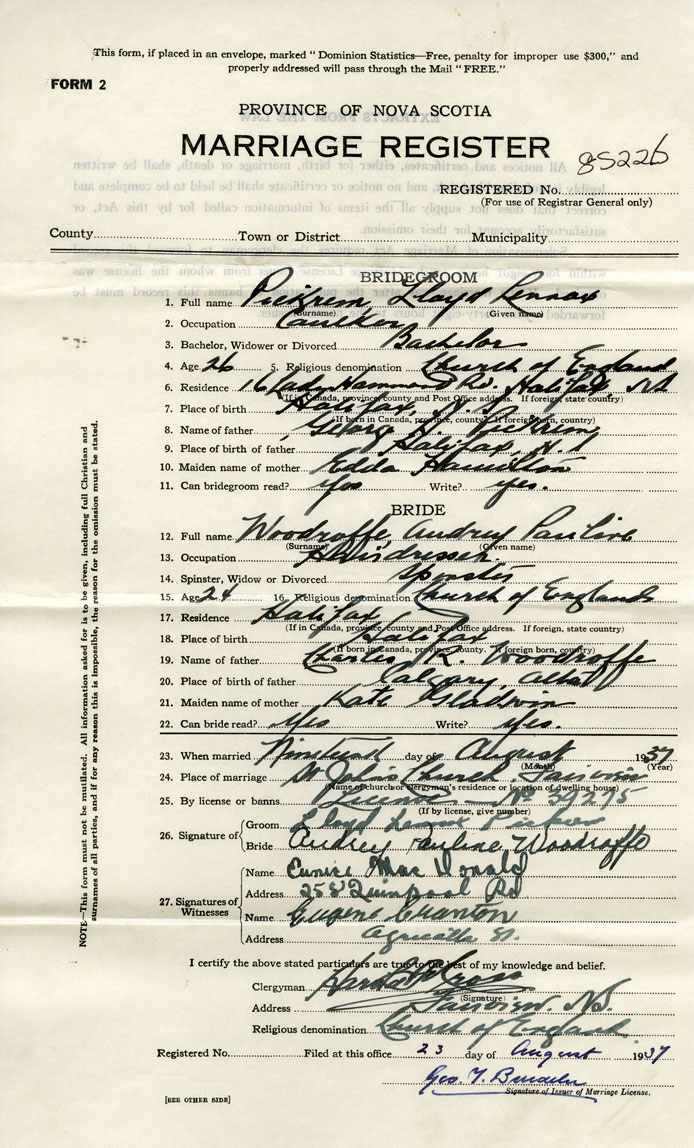 This form, if placed in an envelope, marked "Dominion Statistics—Free, penalty for improper use $300," and
properly addressed will pass through the Mail "FREE."
FORM 2
PROVINCE OF NOVA SCOTIA
MARRIAGE REGISTER
85226
REGISTERED No.
(For use of Registrar General only)
County Town or District Municipality
BRIDEGROOM
1. Full name Pickrem, Lloyd Lennox
(Surname) (Given name)
2. Occupation Caulker
3. Bachelor, Widower or Divorced Bachelor
4. Age 26 5. Religious denomination Church of England
6. Residence 16 Lady Hammond Rd. Halifax, NS
(If in Canada, province, county and Post Office address. If foreign, state country)
7. Place of birth Halifax, N.S.
(If born in Canada, province, county. If foreign born, country)
8. Name of father George Pickrem
9. Place of birth of father Halifax, N.S.
10. Maiden name of mother Edda Hamilton
11. Can bridegroom read? yes Write? yes.
BRIDE
12. Full name Woodroffe, Audrey Pauline
(Surname) (Given name)
13. Occupation Hairdresser
14. Spinster, Widow or Divorced Spinster
15. Age 24 16. Religious denomination Church of England
17. Residence Halifax
(If in Canada, province, county and Post Office address. If foreign, state country)
18. Place of birth Halifax
(If born in Canada, province, county. If foreign born, country)
19. Name of father Charles R. Woodroffe
20. Place of birth of father Calgary, Alta
21. Maiden name of mother Kate
22. Can bride read? Yes Write? Yes.
23. When married Nineteenth day of August 1937
(Month) (Year)
24. Place of marriage St John's Church, Fairview
(Name of church or clergyman's residence or location of dwelling house)
25. By license or banns License No 39275
(If by license, give number)
26. Signature of
Groom Lloyd Lennox Pickrem
Bride Audrey Pauline Woodroffe
27. Signatures of Witnesses
Name Eunice MacDonald
Address 258 Quinpool Rd
Name Eugene
Address Agricola St.
I certify the above stated particulars are true to the best of my knowledge and belief.
Clergyman
(Signature)
Address Fairview. N.S.
Religious denomination Church of England
Registered No. Filed at this office 23 day of August 1937
Geo. T.
Signature of Issuer of Marriage License.
[SEE OTHER SIDE]
NOTE—This form must not be mutilated. All information asked for is to be given, including full Christian and
surnames of all parties, and if for any reason this is impossible, the reason for the omission must be stated.